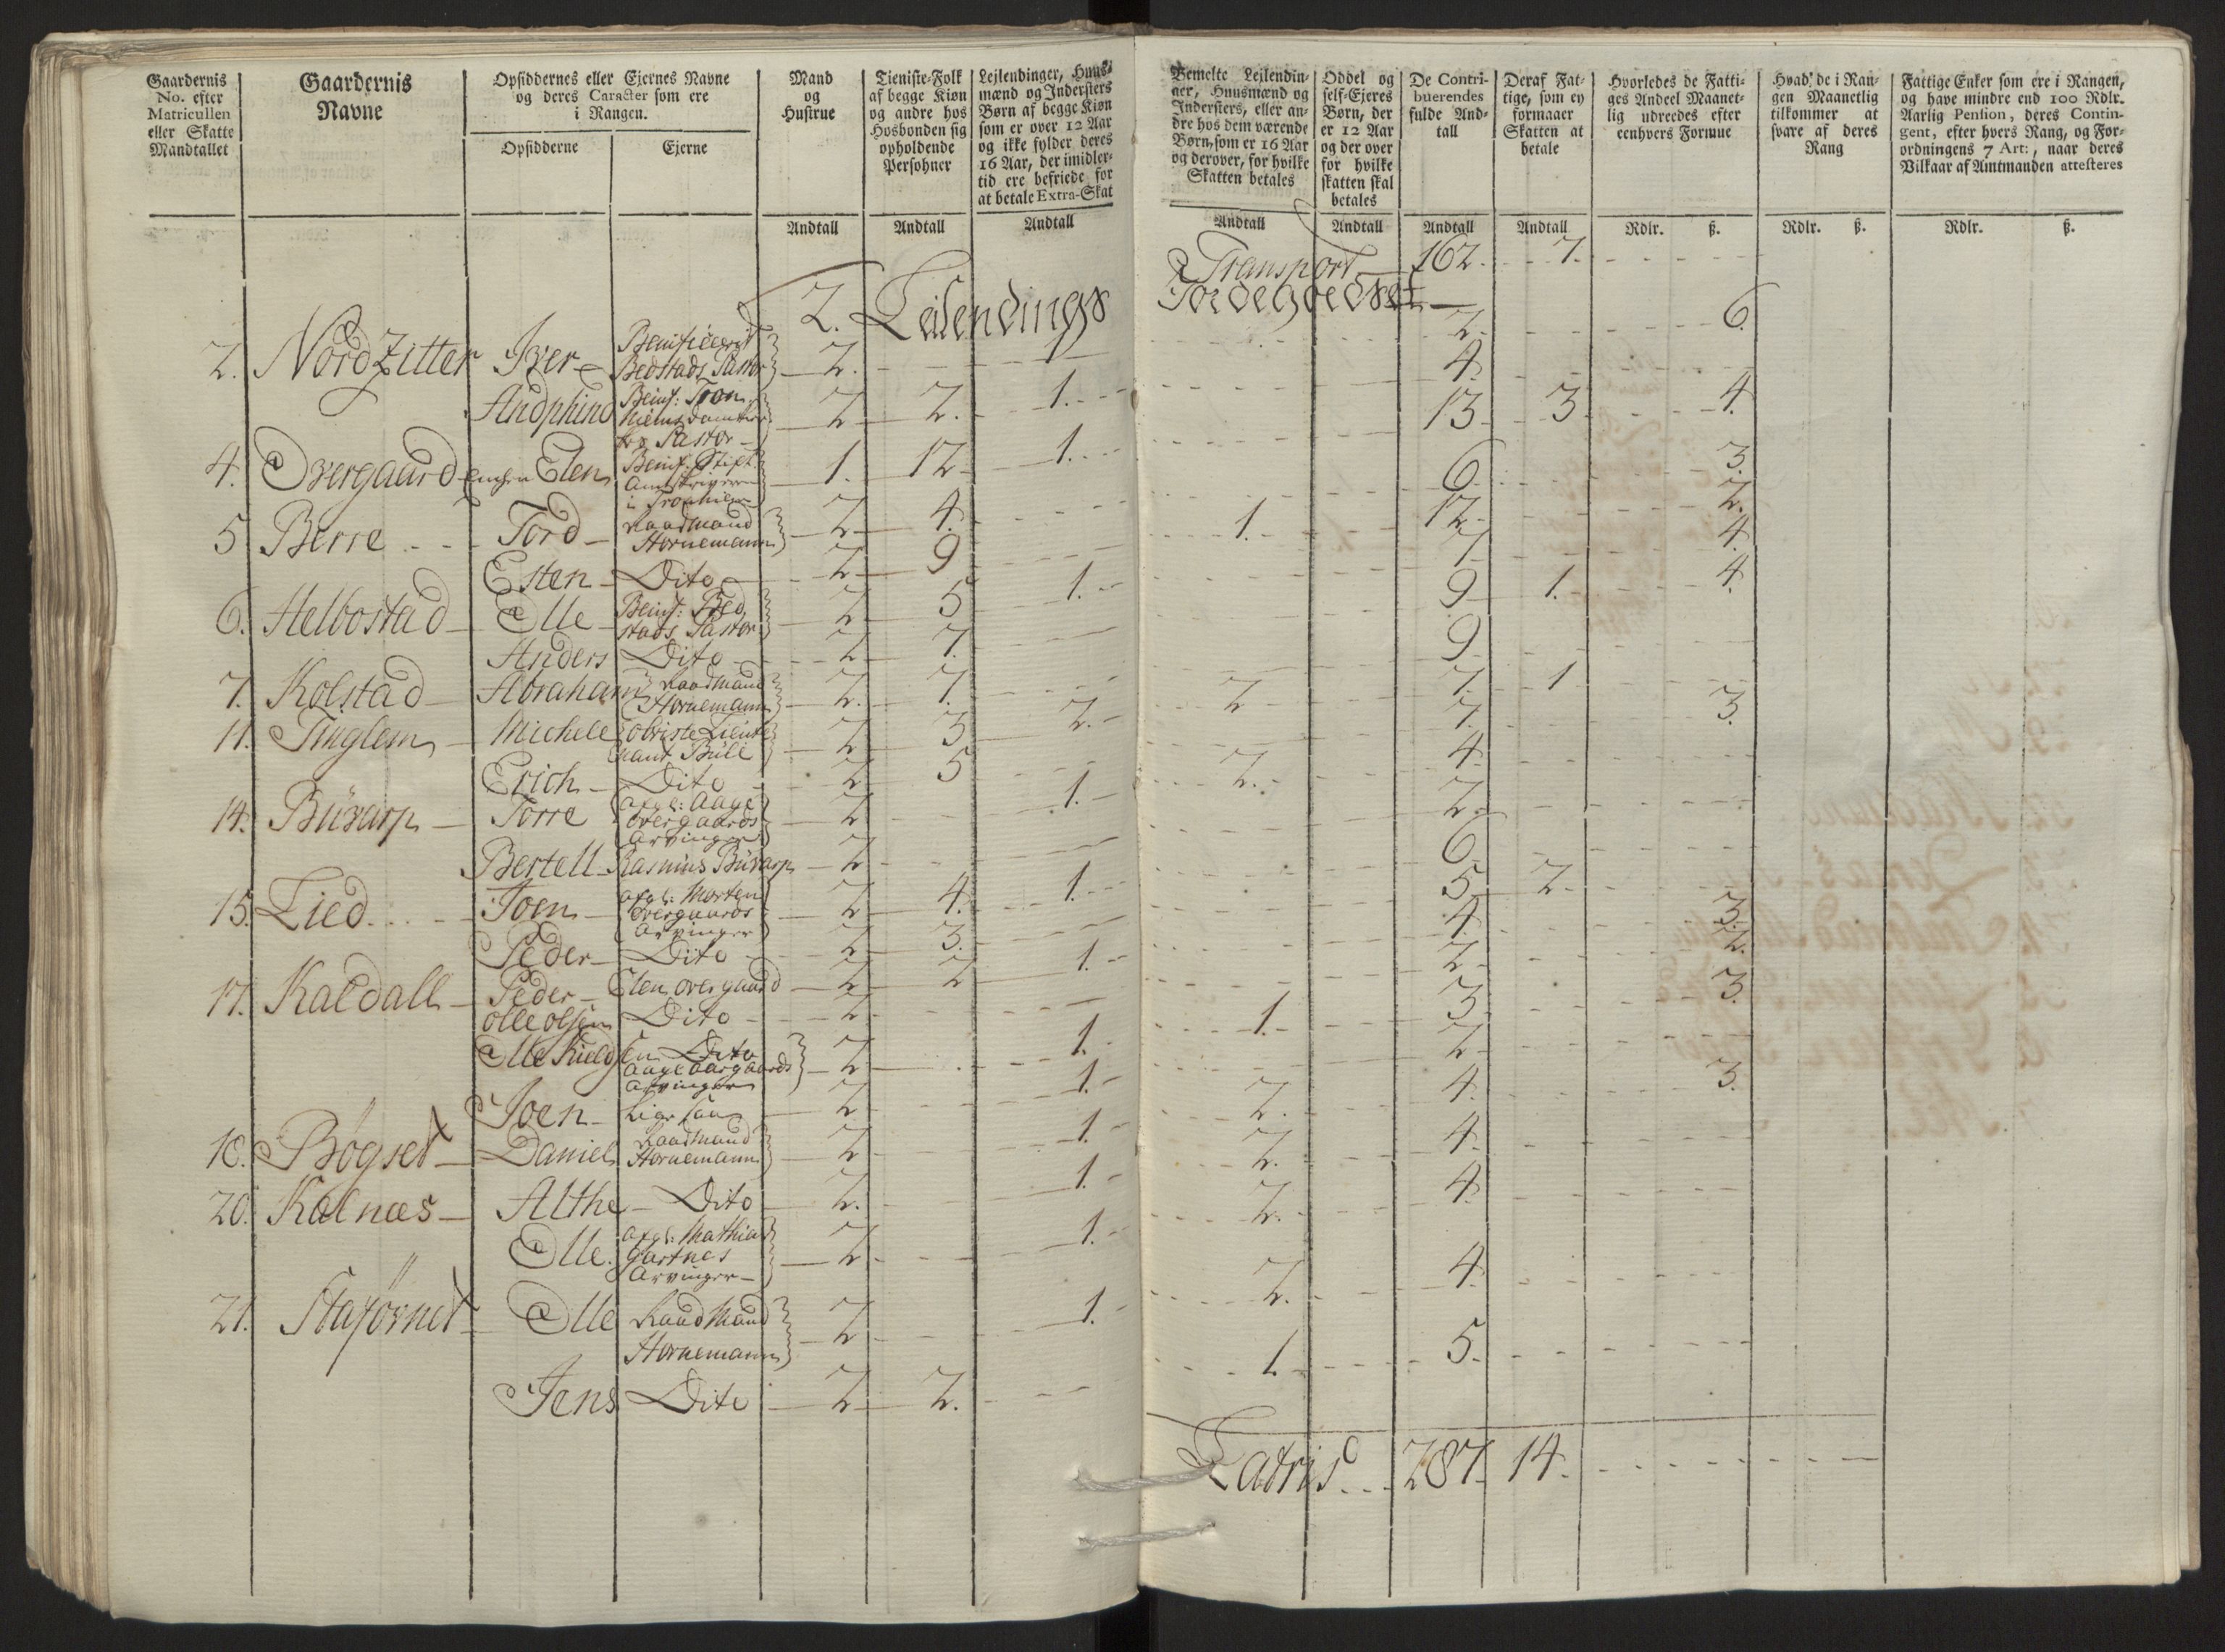 Gaardernis No. efter Matricullen eller Skatte Mandtallet
Gaardernis Navne
Opsiddernes eller Ejernes Navne og deres Caracter som ere i Rangen.
Opsidderne
Ejerne
Mand og Hustrue
Tieniste-Folk af begge Kiøn og andre hos Hosbonden sig opholdende Persohner
Lejlendinger, Huusmænd og Indersters Børn af begge Kiøn som er over 12 Aar og ikke fylder deres 16 Aar, der imidlertid ere befriede for at betale Extra-Skat
Bemelte Lejlendinger, Huusmænd og Indersters, eller andre hos dem værende Børn, som er 16 Aar og derover, for hvilke Skatten betales
Oddel og self-Ejeres Børn, der er 12 Aar og der over for hvilke skatten skal betales
De Contribuerendes fulde Andtall
Deraf Fattige, som ey formaaer Skatten at betale
Hvorledes de Fattiges Andeel Maanetlig udreedes efter eenhvers Formue
Hvad de i Rangen Maanetlig tilkommer at svare af deres Rang
Fattige Enker som ere i Rangen, og have mindre end 100 Rdlr. Aarlig Pension, deres Contingent, efter hvers Rang, og Forordningens 7 Art:, naar deres Vilkaar af Amtmanden attesteres
Andtall Andtall Andtall Andtall Andtall Andtall Andtall Rdlr. ß. Rdlr. ß. Rdlr. ß.
Transport 162. 7.
2. Leilendings Jordegodset
2. Nordzitter Iver Benificeerit Bedstads Pastor 2. 2. 6.
Andphind Benif: Tron 2 2. 1. 4.
Pastor
4. Overgaard Enchen Elen Benif: Stift Amtskriveren i Tronhiem 1. 12 1. 13 3 4.
5 Berre Tord Raadmand Hornemann 2 4. 6. 3.
Esten Dito 2 9 1. 12. 2.
6. Helbostad Olle Benif: Bedstads Pastor 2 5 1. 7. 4.
Anders Dito 2 7. 9 1. 4.
7. Kolstad Abraham Raadmand Hornemann 2. 7. 9.
11. Tinglem Michele Obriste Lieutenant Büll 2 3 2. 2 7. 1
Erich Dito 2 5 7. 3.
14. Büvarp Torre afgl: Aage Overgaards Arvinger 2 1. 2. 4.
Bertell Rasmus Büvarp 2 2.
15. Lied Joen afgl: Morten Overgaards Arvinger 2 4. 1. 6.
Peder Dito 2 3. 5 2.
17. Kaldall Peder Elen overgaard 2 2 1. 4. 3.
Olle Olsen Dito 2 2. 2.
Olle Kieldsen Dito Aage Overgaards Arvinger 2 1. 1. 3 3.
Joen Lige saa 2 1. 2
18. Bøgset Daniel Raadmand Hornemann 2 1. 2. 4. 3.
20. Kalnæs Althe Dito 2. 1. 2. 4.
Olle afgl: Mathias Gartnes Arvinger 2 1. 2. 4.
21. Olle Raadmand Hornemann 2 1. 2. 4.
Jens Dito 2 2. 1. 5.
Latris 287. 14.